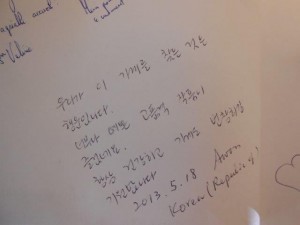 quille accueil
Valérie
우리가 이 가게를 찾은 것은
행운입니다.
너무 예쁜 고품격 작품이
많네요.
항상 건강하고 가게 번창하길
기원합니다
2013. 5. 18 Awon
Korea (Republic of)